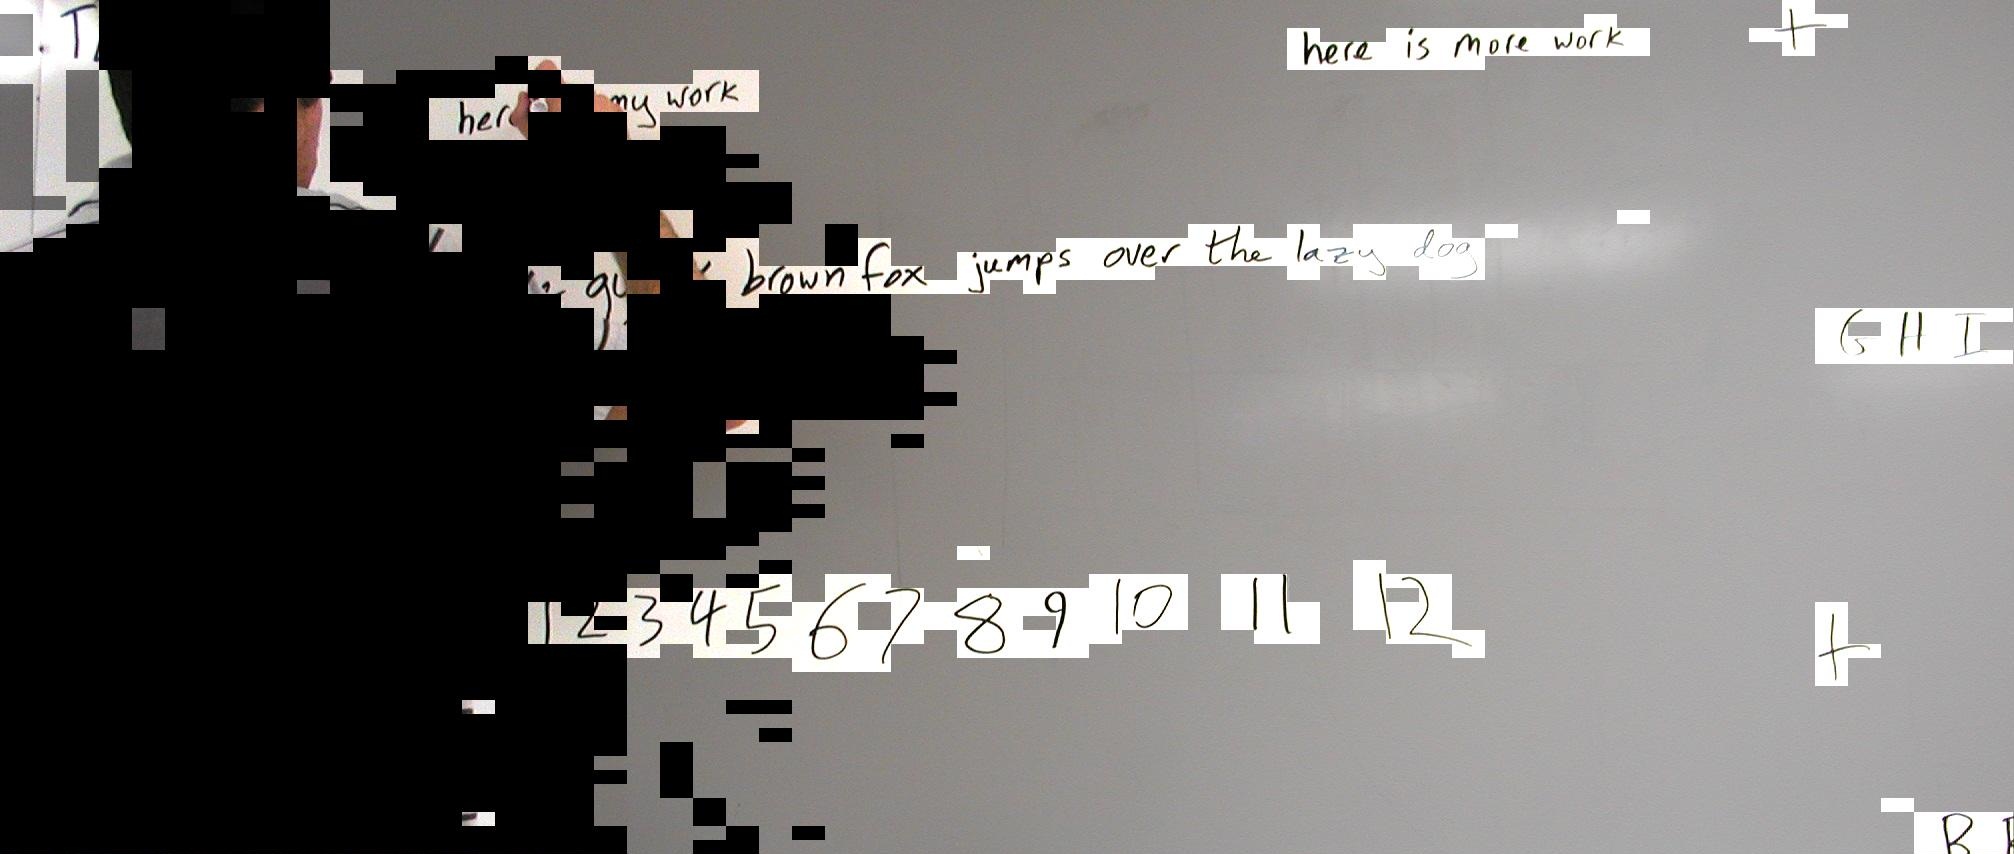 here is more work
my work
brown fox jumps over the lazy dog
G H I
1 2 3 4 5 6 7 8 9 10 11 12